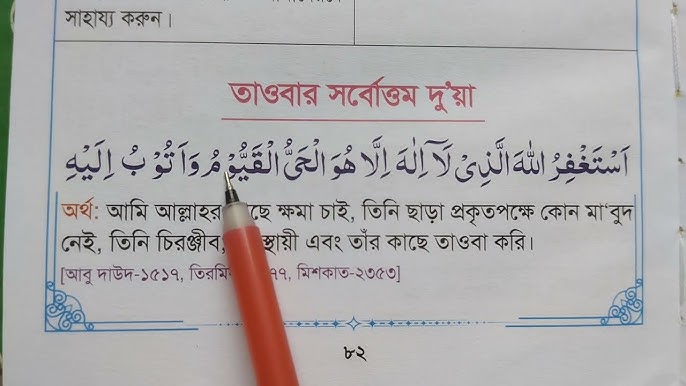 সাহায্য করুন।
তাওবার সর্বোত্তম দু'য়া
اَسْتَغْفِرُ اللّٰهَ الَّذِىْ لَآ اِلٰهَ اِلَّا هُوَ الْحَىُّ الْقَيُّوْمُ وَاَتُوْبُ اِلَيْهِ
অর্থ: আমি আল্লাহর ছে ক্ষমা চাই, তিনি ছাড়া প্রকৃতপক্ষে কোন মা'বুদ
নেই, তিনি চিরঞ্জীব, স্থায়ী এবং তাঁর কাছে তাওবা করি।
[আবু দাউদ-১৫১৭, তিরমি ৭৭, মিশকাত-২৩৫৩]
৮২